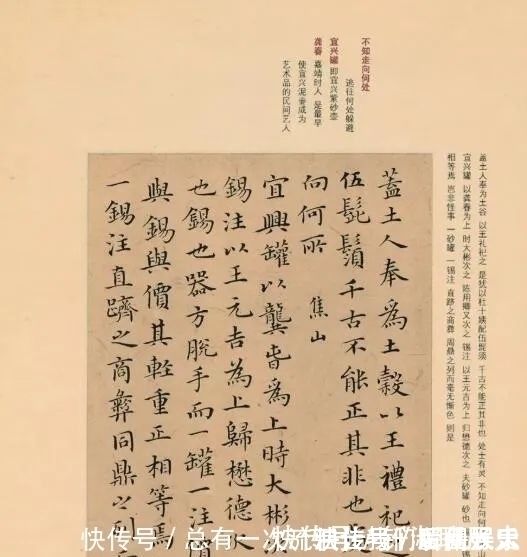 不知走向何处
逃往何处躲避
宜兴罐 即宜兴紫砂壶
龚春 嘉靖时人 是最早
使宜兴泥壶成为
艺术品的民间艺人
盖土人奉为土谷 以王礼祀之 是犹以杜十姨配伍髭须 千古不能正其非也 处士有灵 不知走向何
宜兴罐 以龚春为上 时大彬次之 陈用卿又次之 锡注 以王元吉为上 归懋德次之 夫砂罐 砂也 锡
相等焉 岂非怪事 一砂罐 一锡注 直跻之商彝 周鼎之列而毫无惭色 则是
蓋土人奉為土穀以王禮祀
伍髭鬚千古不能正其非也
向何所 焦山
宜興罐以龔春為上時大彬
錫注以王元吉為上歸懋德
也錫也器方脫手而一罐一注
與錫與價其輕重正相等焉
一錫注直躋之商彝同鼎之列
快传号 / 总有一次